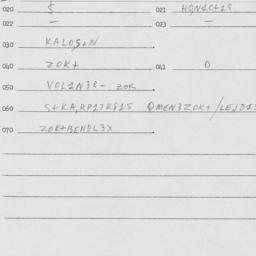 020 $ 021 HQN1C+1S
022 — 023 —
030 KALOS+N
040 ZOK+ 041 0
050 VOL1N3R- ZOK
060 S+KA,RP1TK815 QMEN3ZOK+/LEJD1S
070 ZOK+BENDL3X